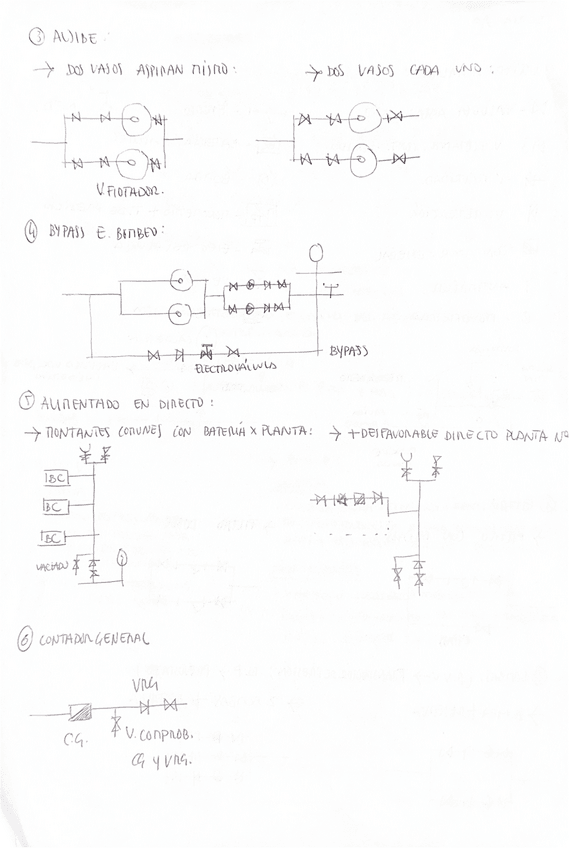 ③ ALJIBE:
→ DOS VASOS ASPIRAN MISMO:
→ DOS VASOS CADA UNO:
V FLOTADOR.
④ BYPASS E. BOMBEO:
BYPASS
ELECTROVÁLVULA
⑤ ALIMENTADO EN DIRECTO:
→ MONTANTES COMUNES CON BATERÍA X PLANTA:
→ + DESFAVORABLE DIRECTO PLANTA Nº
BC
BC
BC
VACIADO
⑥ CONTADOR GENERAL
VRG
C.G.
V. COMPROB.
CG y VRG.